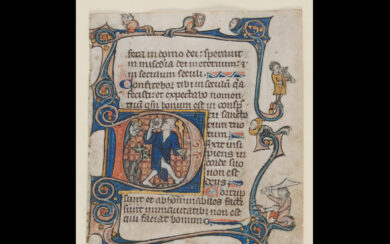 fera in domo dei: speravit
in miscdia dei in eternum: &
in seculum seculi.
Confitebor tibi in seculū
fecisti: et expectabo nomen
tuū qm bonum est in consp
sancto
tuo
ixit insi
piens in
corde suo
non est
deus Corrup
sunt et abhominabiles facti
sunt in iniquitatibus non est
qui faciat bonum.